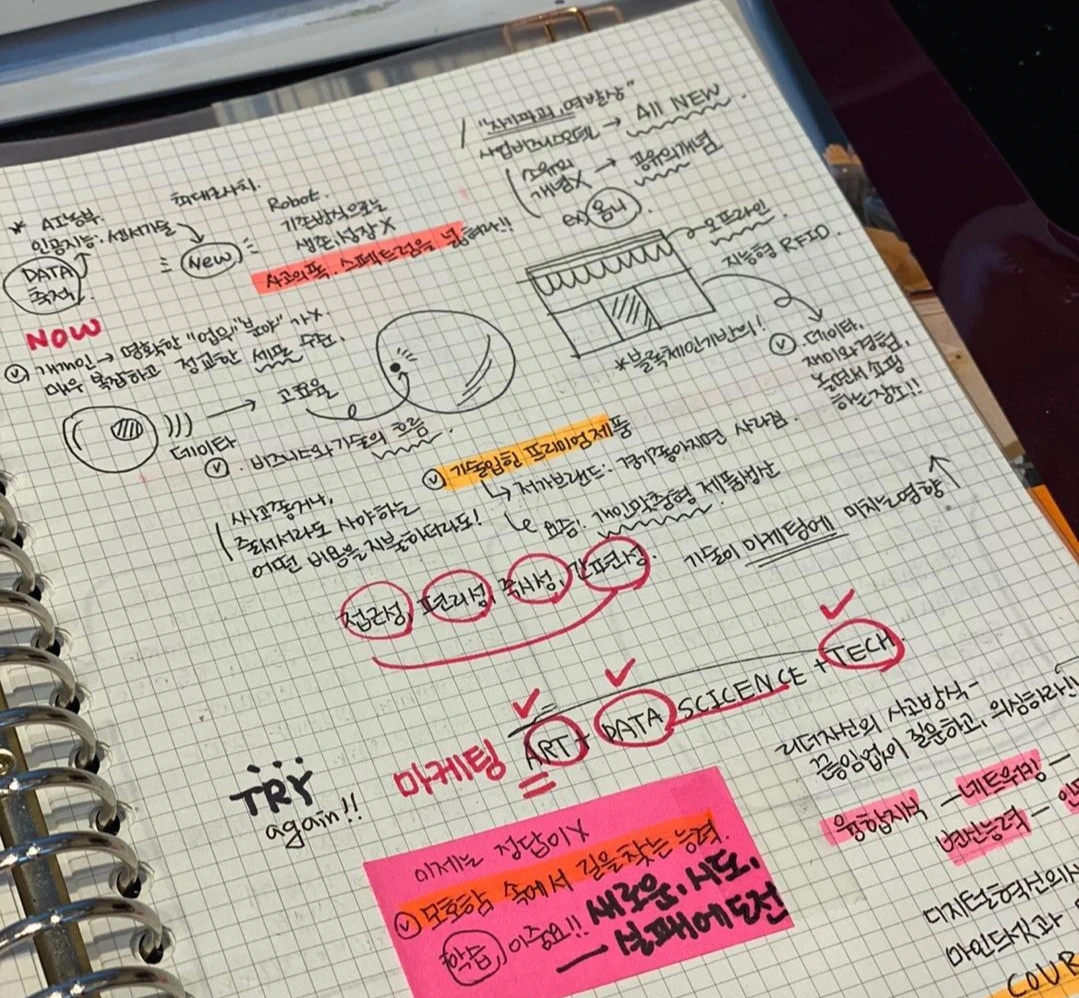 "자기파괴, 역발상"
사업비즈니스모델 → All NEW
소유의 개념X → 공유의개념
ex) 옴니
오프라인
지능형 RFID
*블록체인기반의!
데이타,
재미와경험,
놀면서 쇼핑
하는장소!!
* AI농부.
인공지능. 센서기술
DATA 축적
New
Robot.
기존방식으로는
생존, 성장X
사고의폭, 스펙트럼을 넓혀라!!
NOW
개개인 → 명확한 "업무" "분야" 가X
매우 복잡하고 정교한 세포
데이타
고효율
비즈니스와기술의 흐름.
기술입힌 프리미엄제품
저가브랜드: 경기좋아지면 사라짐.
요즘: 개인맞춤형 제품생산
사사고좋거나,
줄서서라도 사야하는
어떤 비용을지불하더라도!
접근성, 편리성, 즉시성, 간편성.
기술이 마케팅에 미치는영향
마케팅 ART + DATA SCICENCE + TECH.
TRY
again!!
이제는 정답이X
모호함 속에서 길을찾는 능력.
학습이중요!! 새로움, 시도,
— 실패에도전
리더자신의 사고방식-
끊임없이 질문하고, 의심하라
융합지식 — 네트워킹 —
변신능력 —
디지털혁신의
마인드셋과
COUR